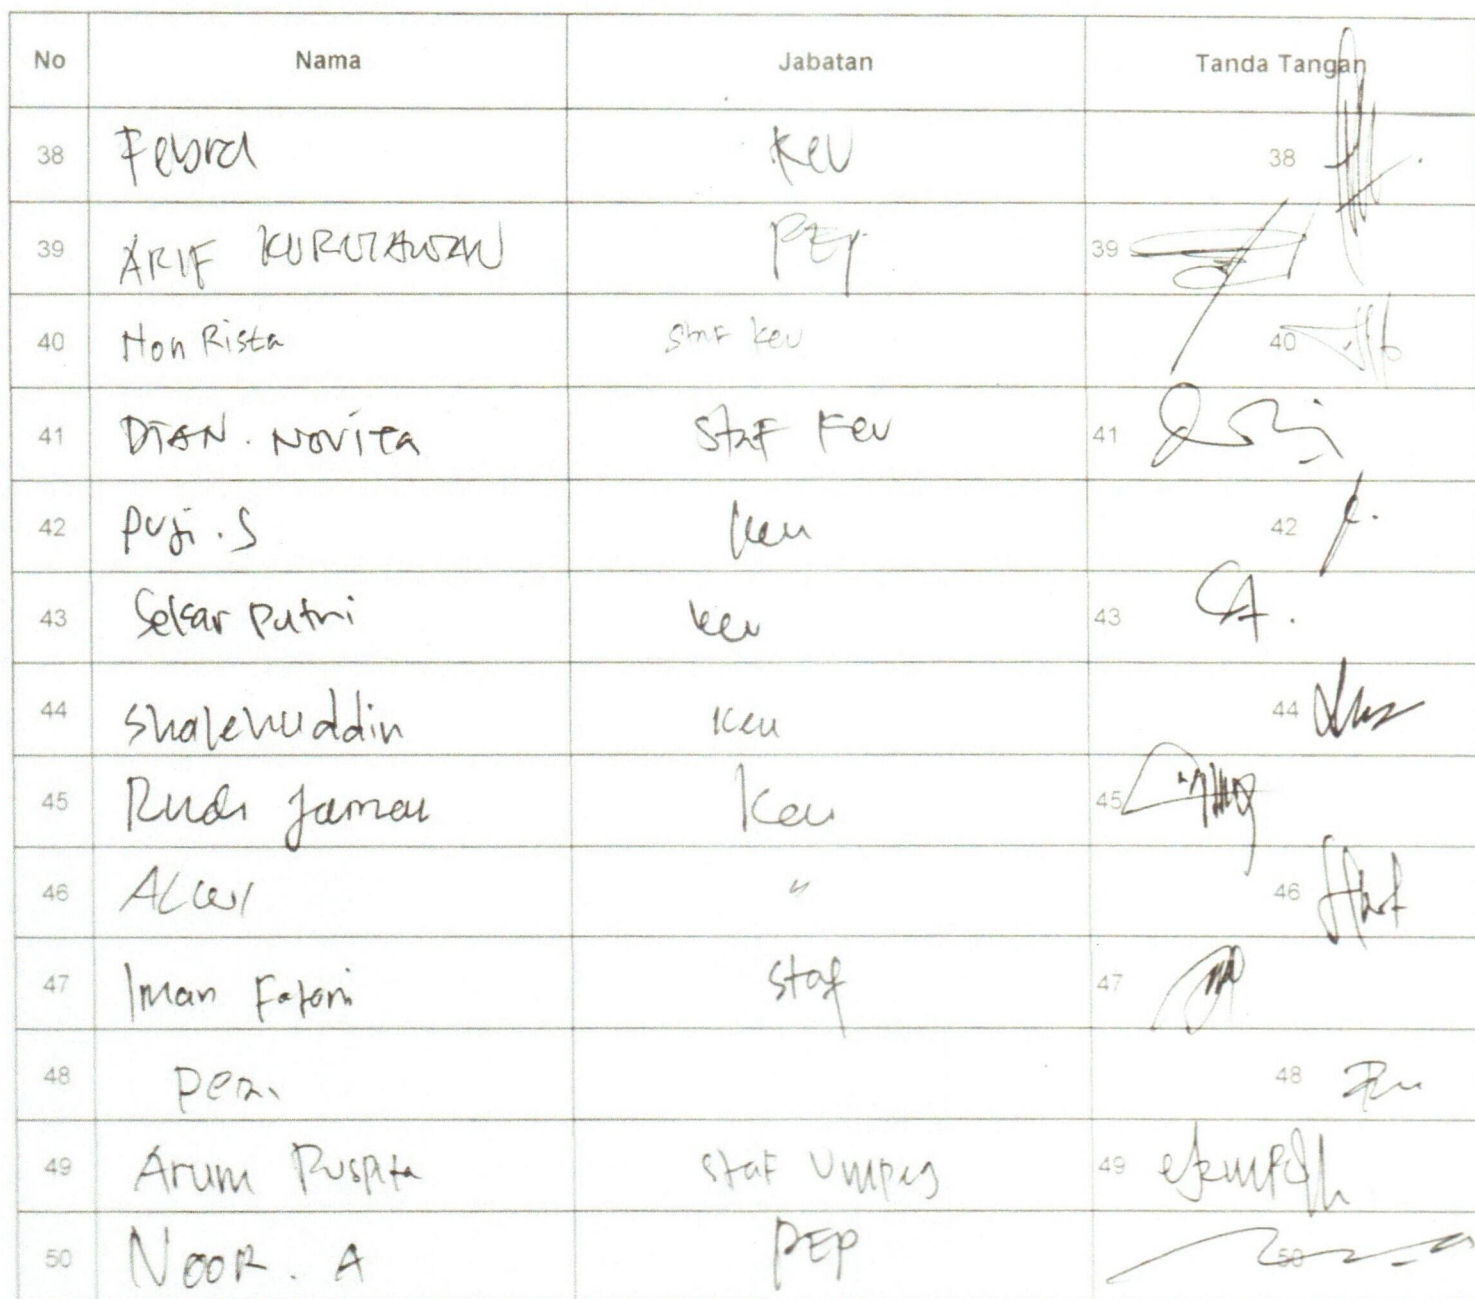 No Nama Jabatan Tanda Tangan
38 Febra Keu 38
39 ARIF KURNIAWAN PEP 39
40 Rista Staf keu 40
41 DIAN. NOVITA Staf keu 41
42 Puji. S keu 42
43 Sekar Putri keu 43
44 Shalehuddin keu 44
45 Rudi Keu 45
46 " 46
47 Iman Fatoni Staf 47
48 48
49 Arum Puspita Staf Umpeg 49
50 NOOR. A PEP 50